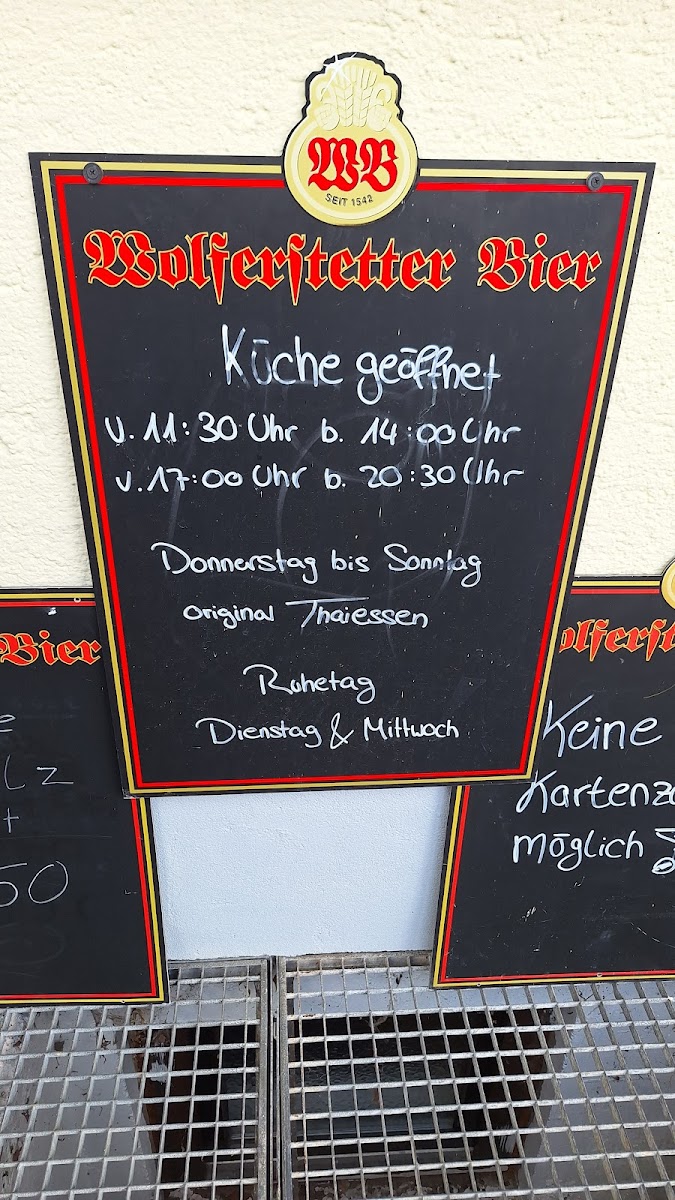 WB
SEIT 1542
Wolferstetter Bier
Küche geöffnet
v. 11:30 Uhr b. 14:00 Uhr
v. 17:00 Uhr b. 20:30 Uhr
Donnerstag bis Sonntag
original Thaiessen
Ruhetag
Dienstag & Mittwoch
Bier
50
Keine
möglich